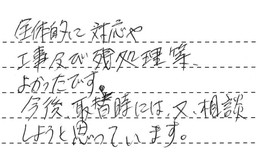 全体的に対応や
工事及び残処理等、
よかったです。
今後、取替時には、又、相談
しようと思っています。